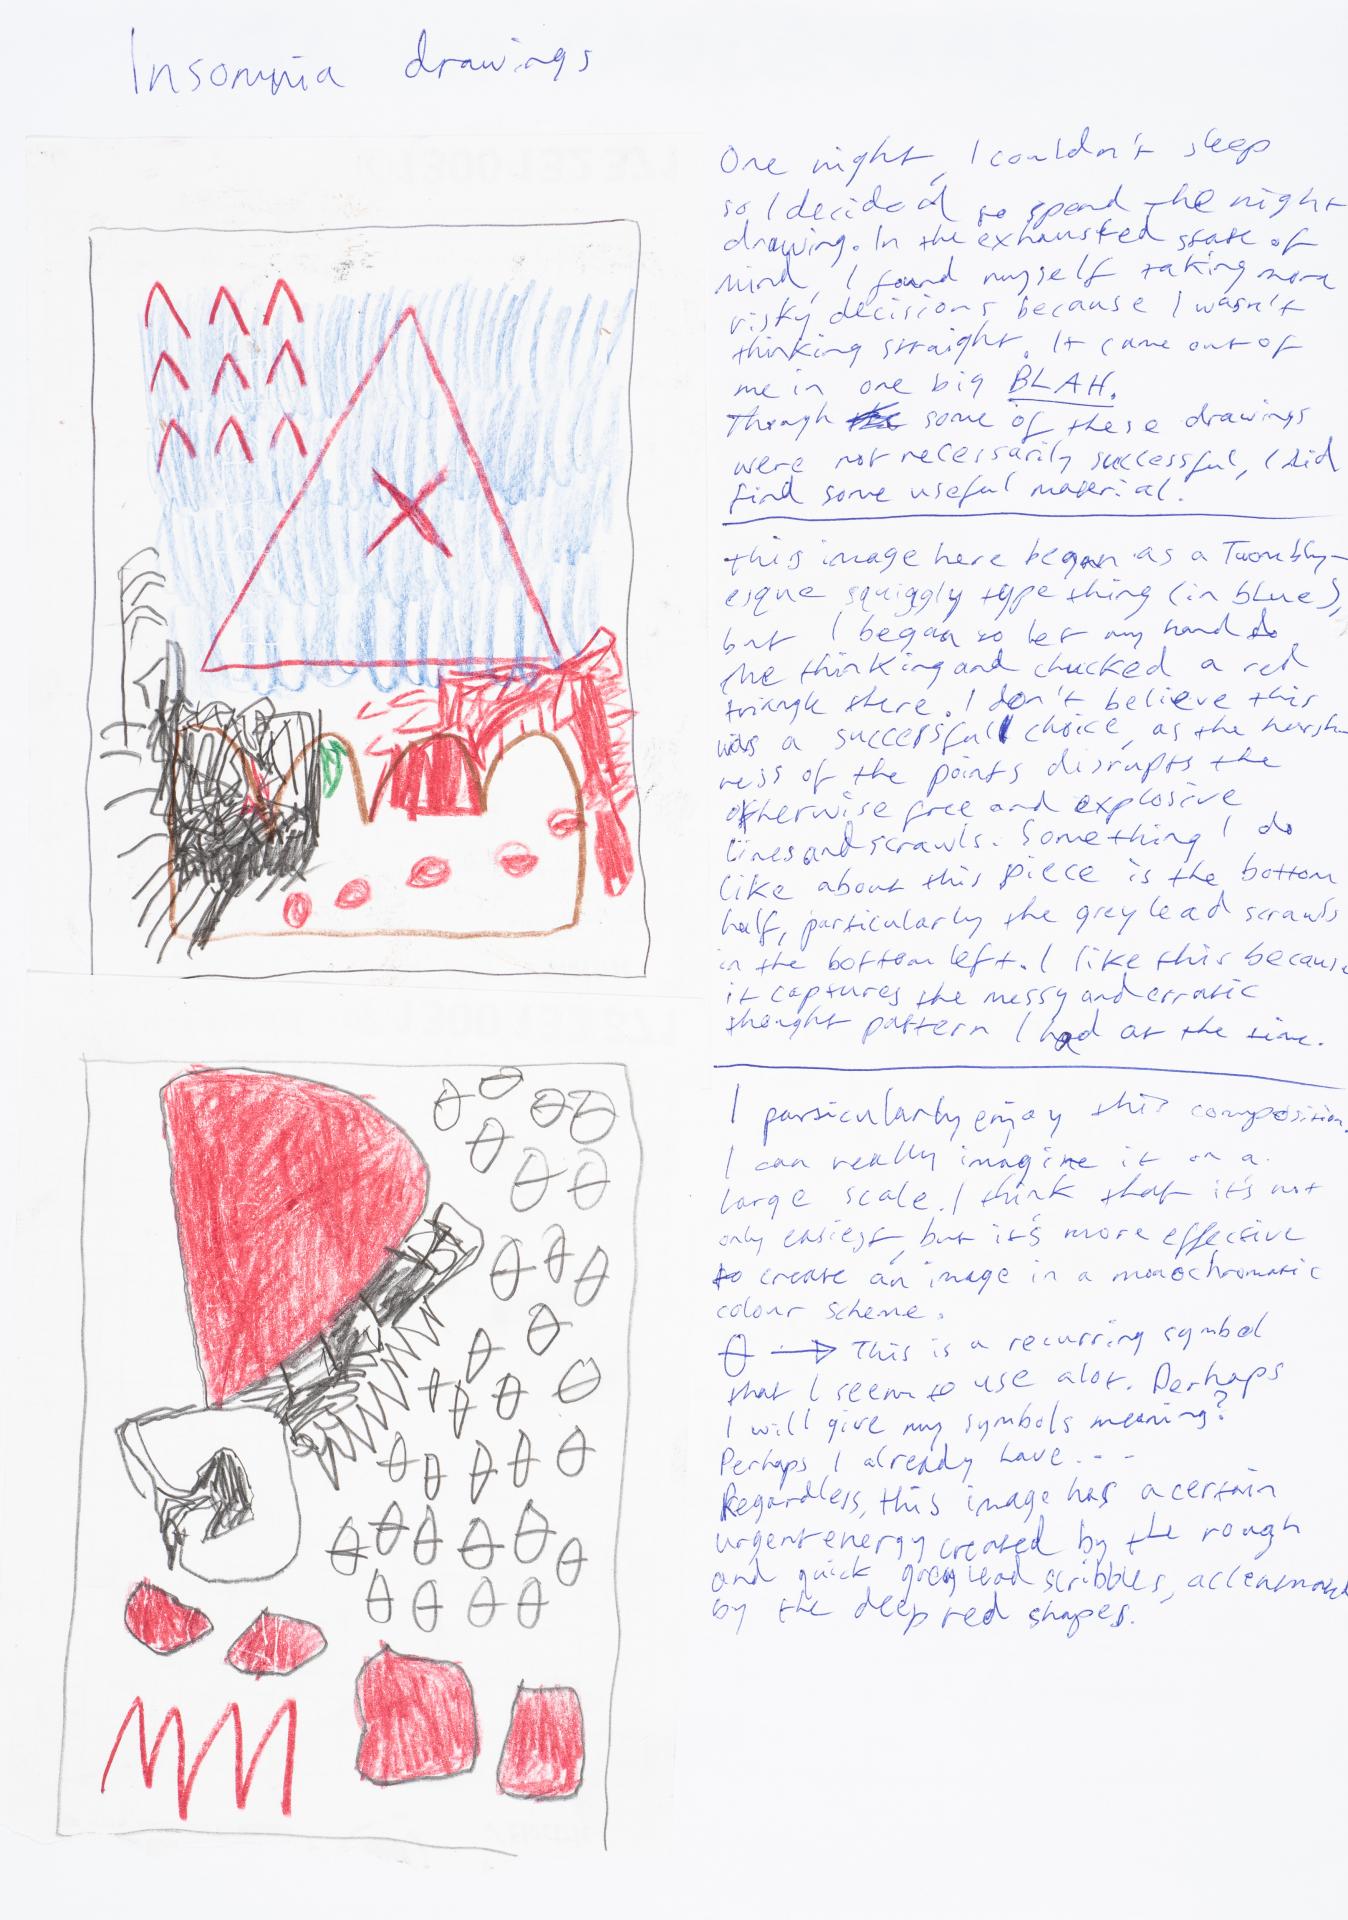 Insomnia drawings
One night, I couldn't sleep
so I decided to spend the night
drawing. In the exhausted state of
mind, I found myself taking more
risky decisions because I wasn't
thinking straight. It came out of
me in one big BLAH.
Though some of these drawings
were not necessarily successful, I did
find some useful material.
This image here began as a Twombly-
esque squiggly type thing (in blue),
but I began to let my hand do
the thinking and chucked a red
triangle there. I don't believe this
was a successful choice, as the harsh-
ness of the points disrupts the
otherwise free and explosive
lines and scrawls. Something I do
like about this piece is the bottom
half, particularly the grey lead scrawls
in the bottom left. I like this because
it captures the messy and erratic
thought pattern I had at the time.
I particularly enjoy this composition.
I can really imagine it on a
large scale. I think that it's not
only easiest, but it's more effective
to create an image in a monochromatic
colour scheme.
θ → This is a recurring symbol
that I seem to use alot. Perhaps
I will give my symbols meaning?
Perhaps I already have...
Regardless, this image has a certain
urgent energy created by the rough
and quick grey lead scribbles, accentuated
by the deep red shapes.